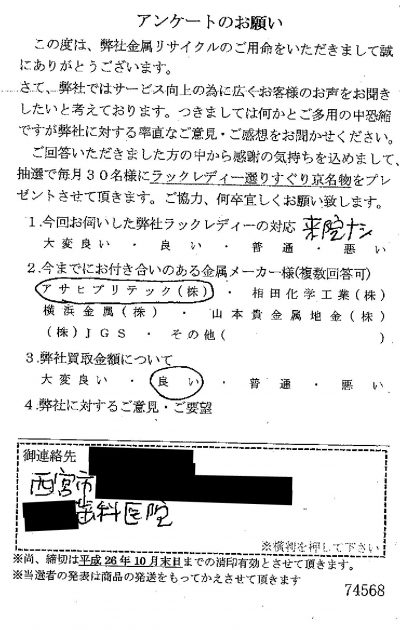 アンケートのお願い
この度は、弊社金属リサイクルのご用命をいただきまして誠
にありがとうございます。
さて、弊社ではサービス向上の為に広くお客様のお声をお聞き
したいと考えております。つきましては何かとご多用の中恐縮
ですが弊社に対する率直なご意見・ご感想をお聞かせください。
ご回答いただきました方の中から感謝の気持ちを込めまして、
抽選で毎月30名様にラックレディー選りすぐり京名物をプレ
ゼントさせて頂きます。ご協力、何卒宜しくお願い致します。
1.今回お伺いした弊社ラックレディーの対応 来院ナシ
大変良い・良い・普通・悪い
2.今までにお付き合いのある金属メーカー様(複数回答可)
アサヒプリテック(株)・相田化学工業(株)
横浜金属(株)・山本貴金属地金(株)
(株)JGS・その他( )
3.弊社買取金額について
大変良い・良い・普通・悪い
4.弊社に対するご意見・ご要望
御連絡先
西宮市
歯科医院
※横判を押して下さい
※尚、締切は平成26年10月末日までの消印有効とさせて頂きます。
※当選者の発表は商品の発送をもってかえさせて頂きます
74568